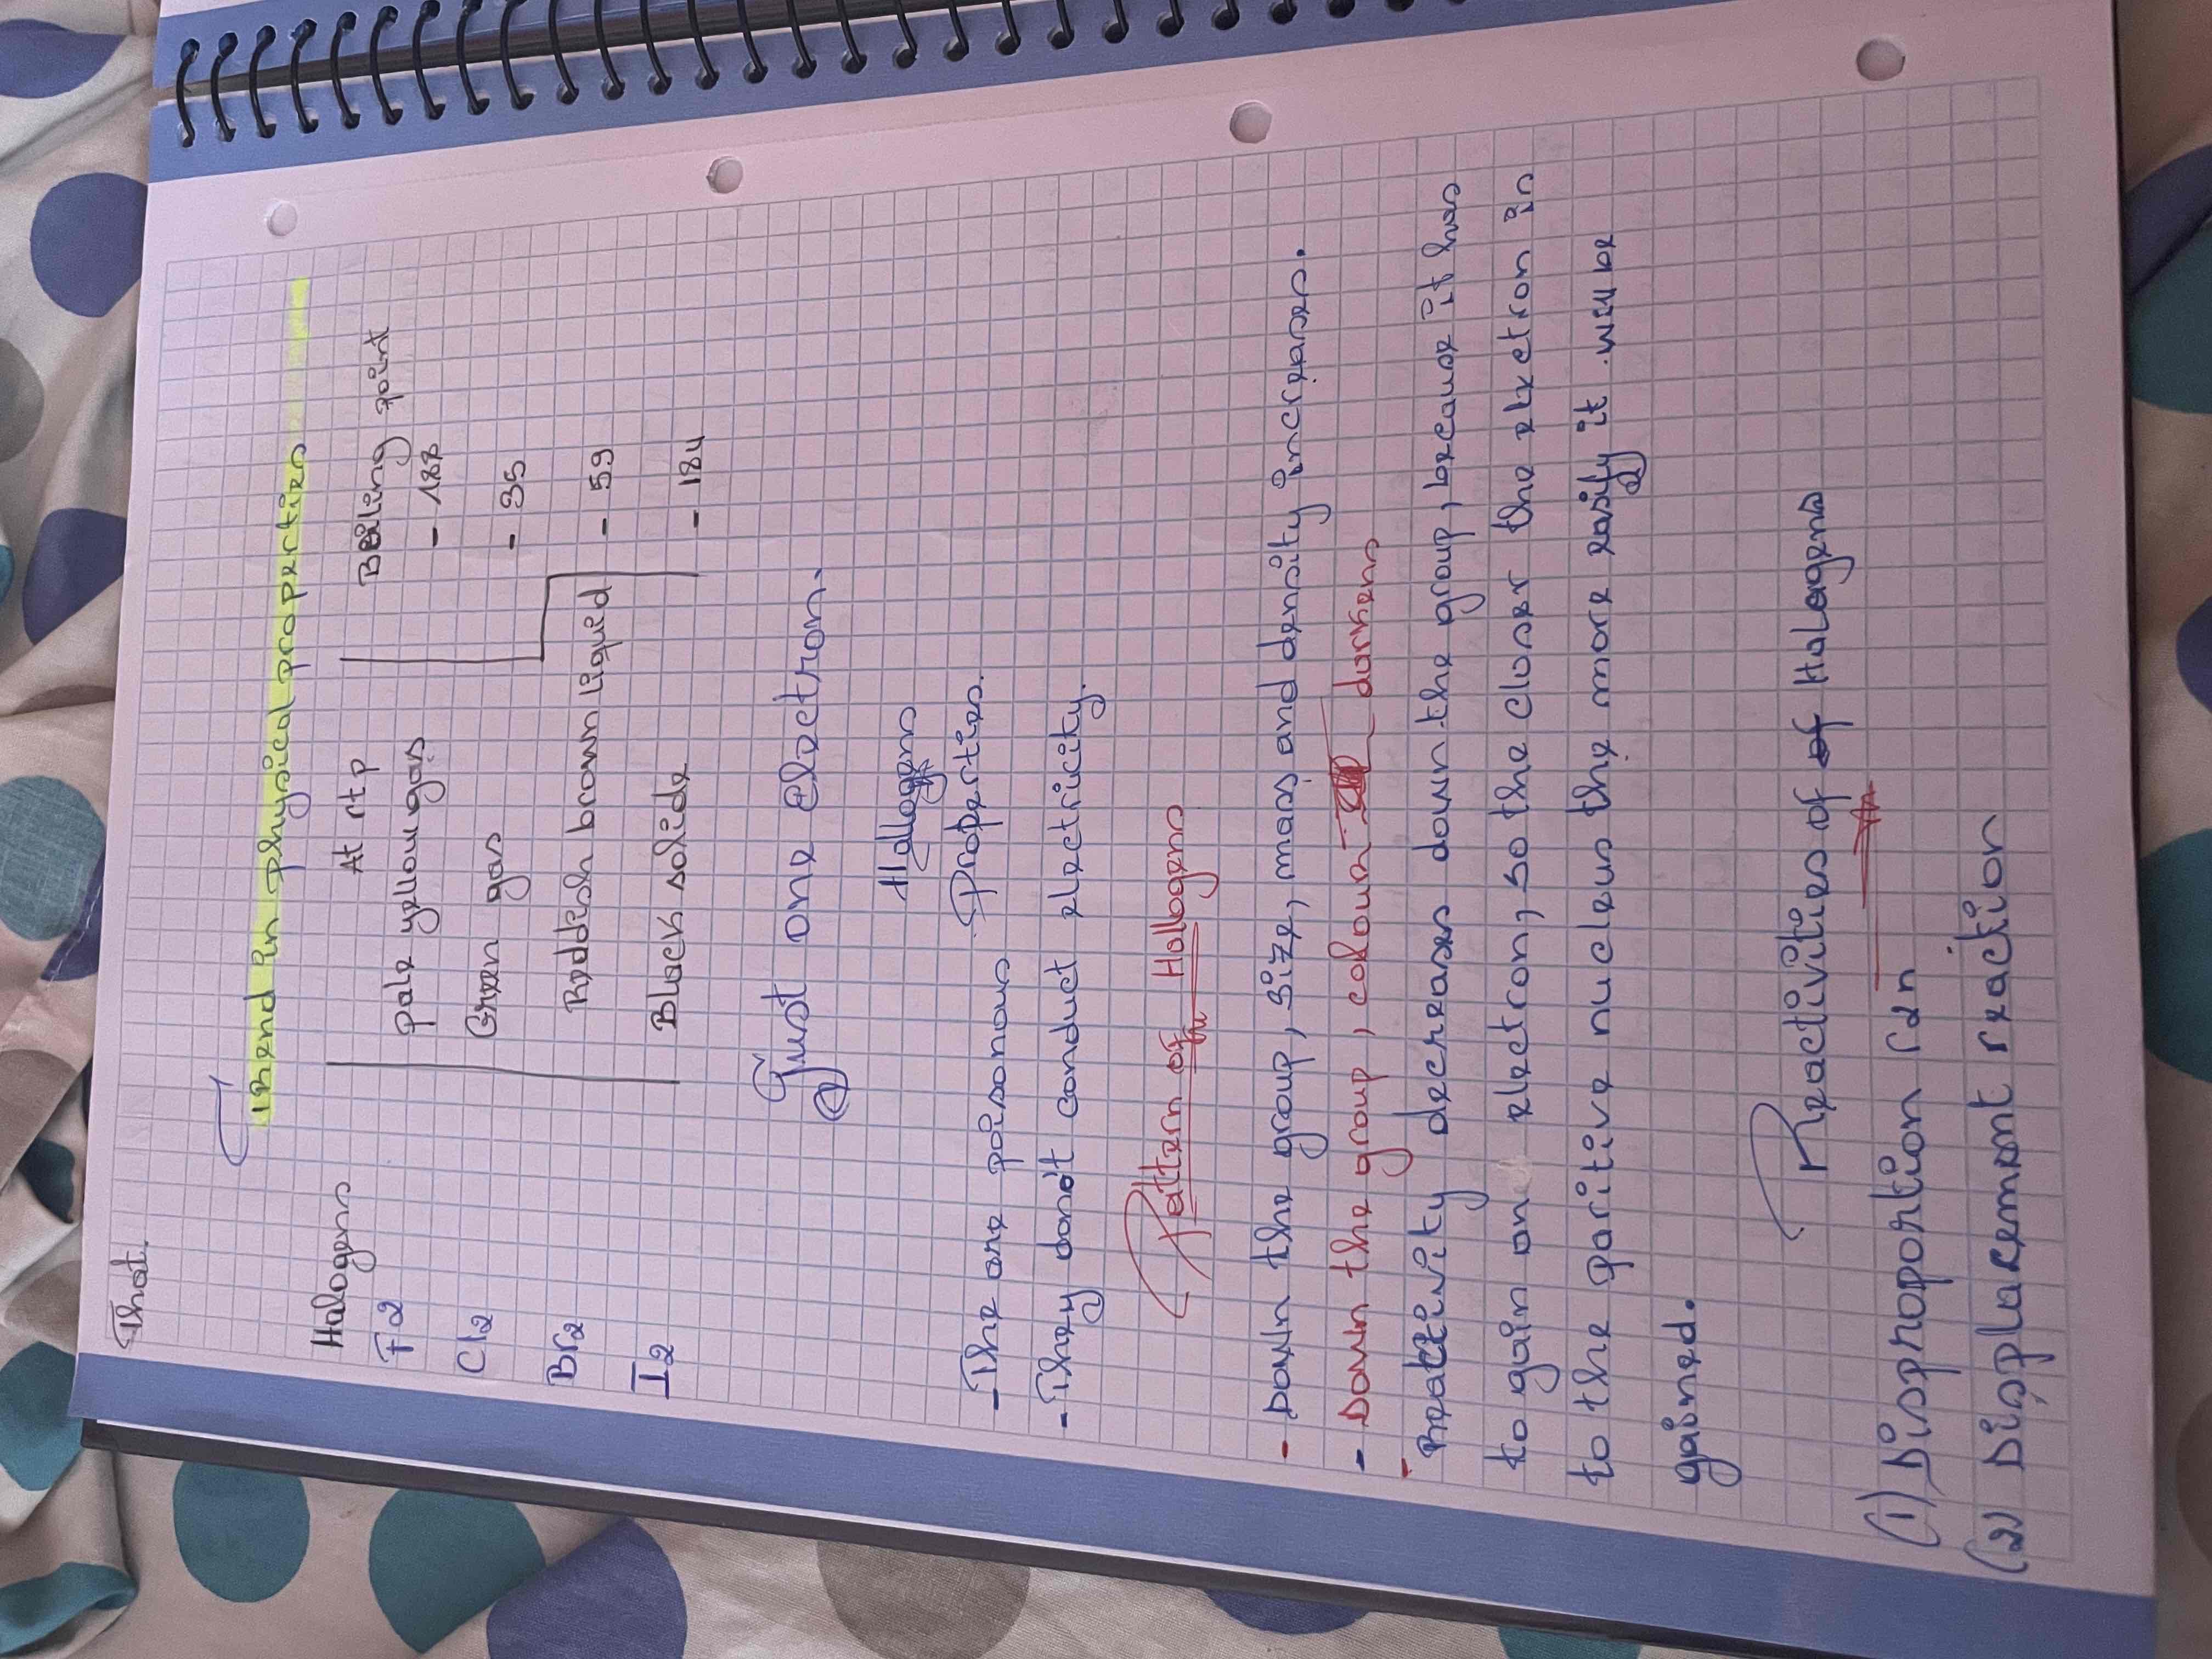 That.
Trend in physical properties
Halogens At rtp Boiling point
F2 pale yellow gas - 188
Cl2 Green gas - 35
Br2 Reddish brown liquid - 59
I2 Black solide - 184
Gust one electron.
Hallogens
Properties.
- The are poisonous
- They donot conduct electricity.
Pattern of Hallogens
- Down the group, size, mass and density increases.
- Down the group, colour darkens
- Reactivity decreases down the group, because it has
to gain an electron, so the closer the electron is
to the positive nucleus the more easily it will be
gained.
Reactivities of of Halogens
(1) Disproportion rdn
(2) Displacement reaction